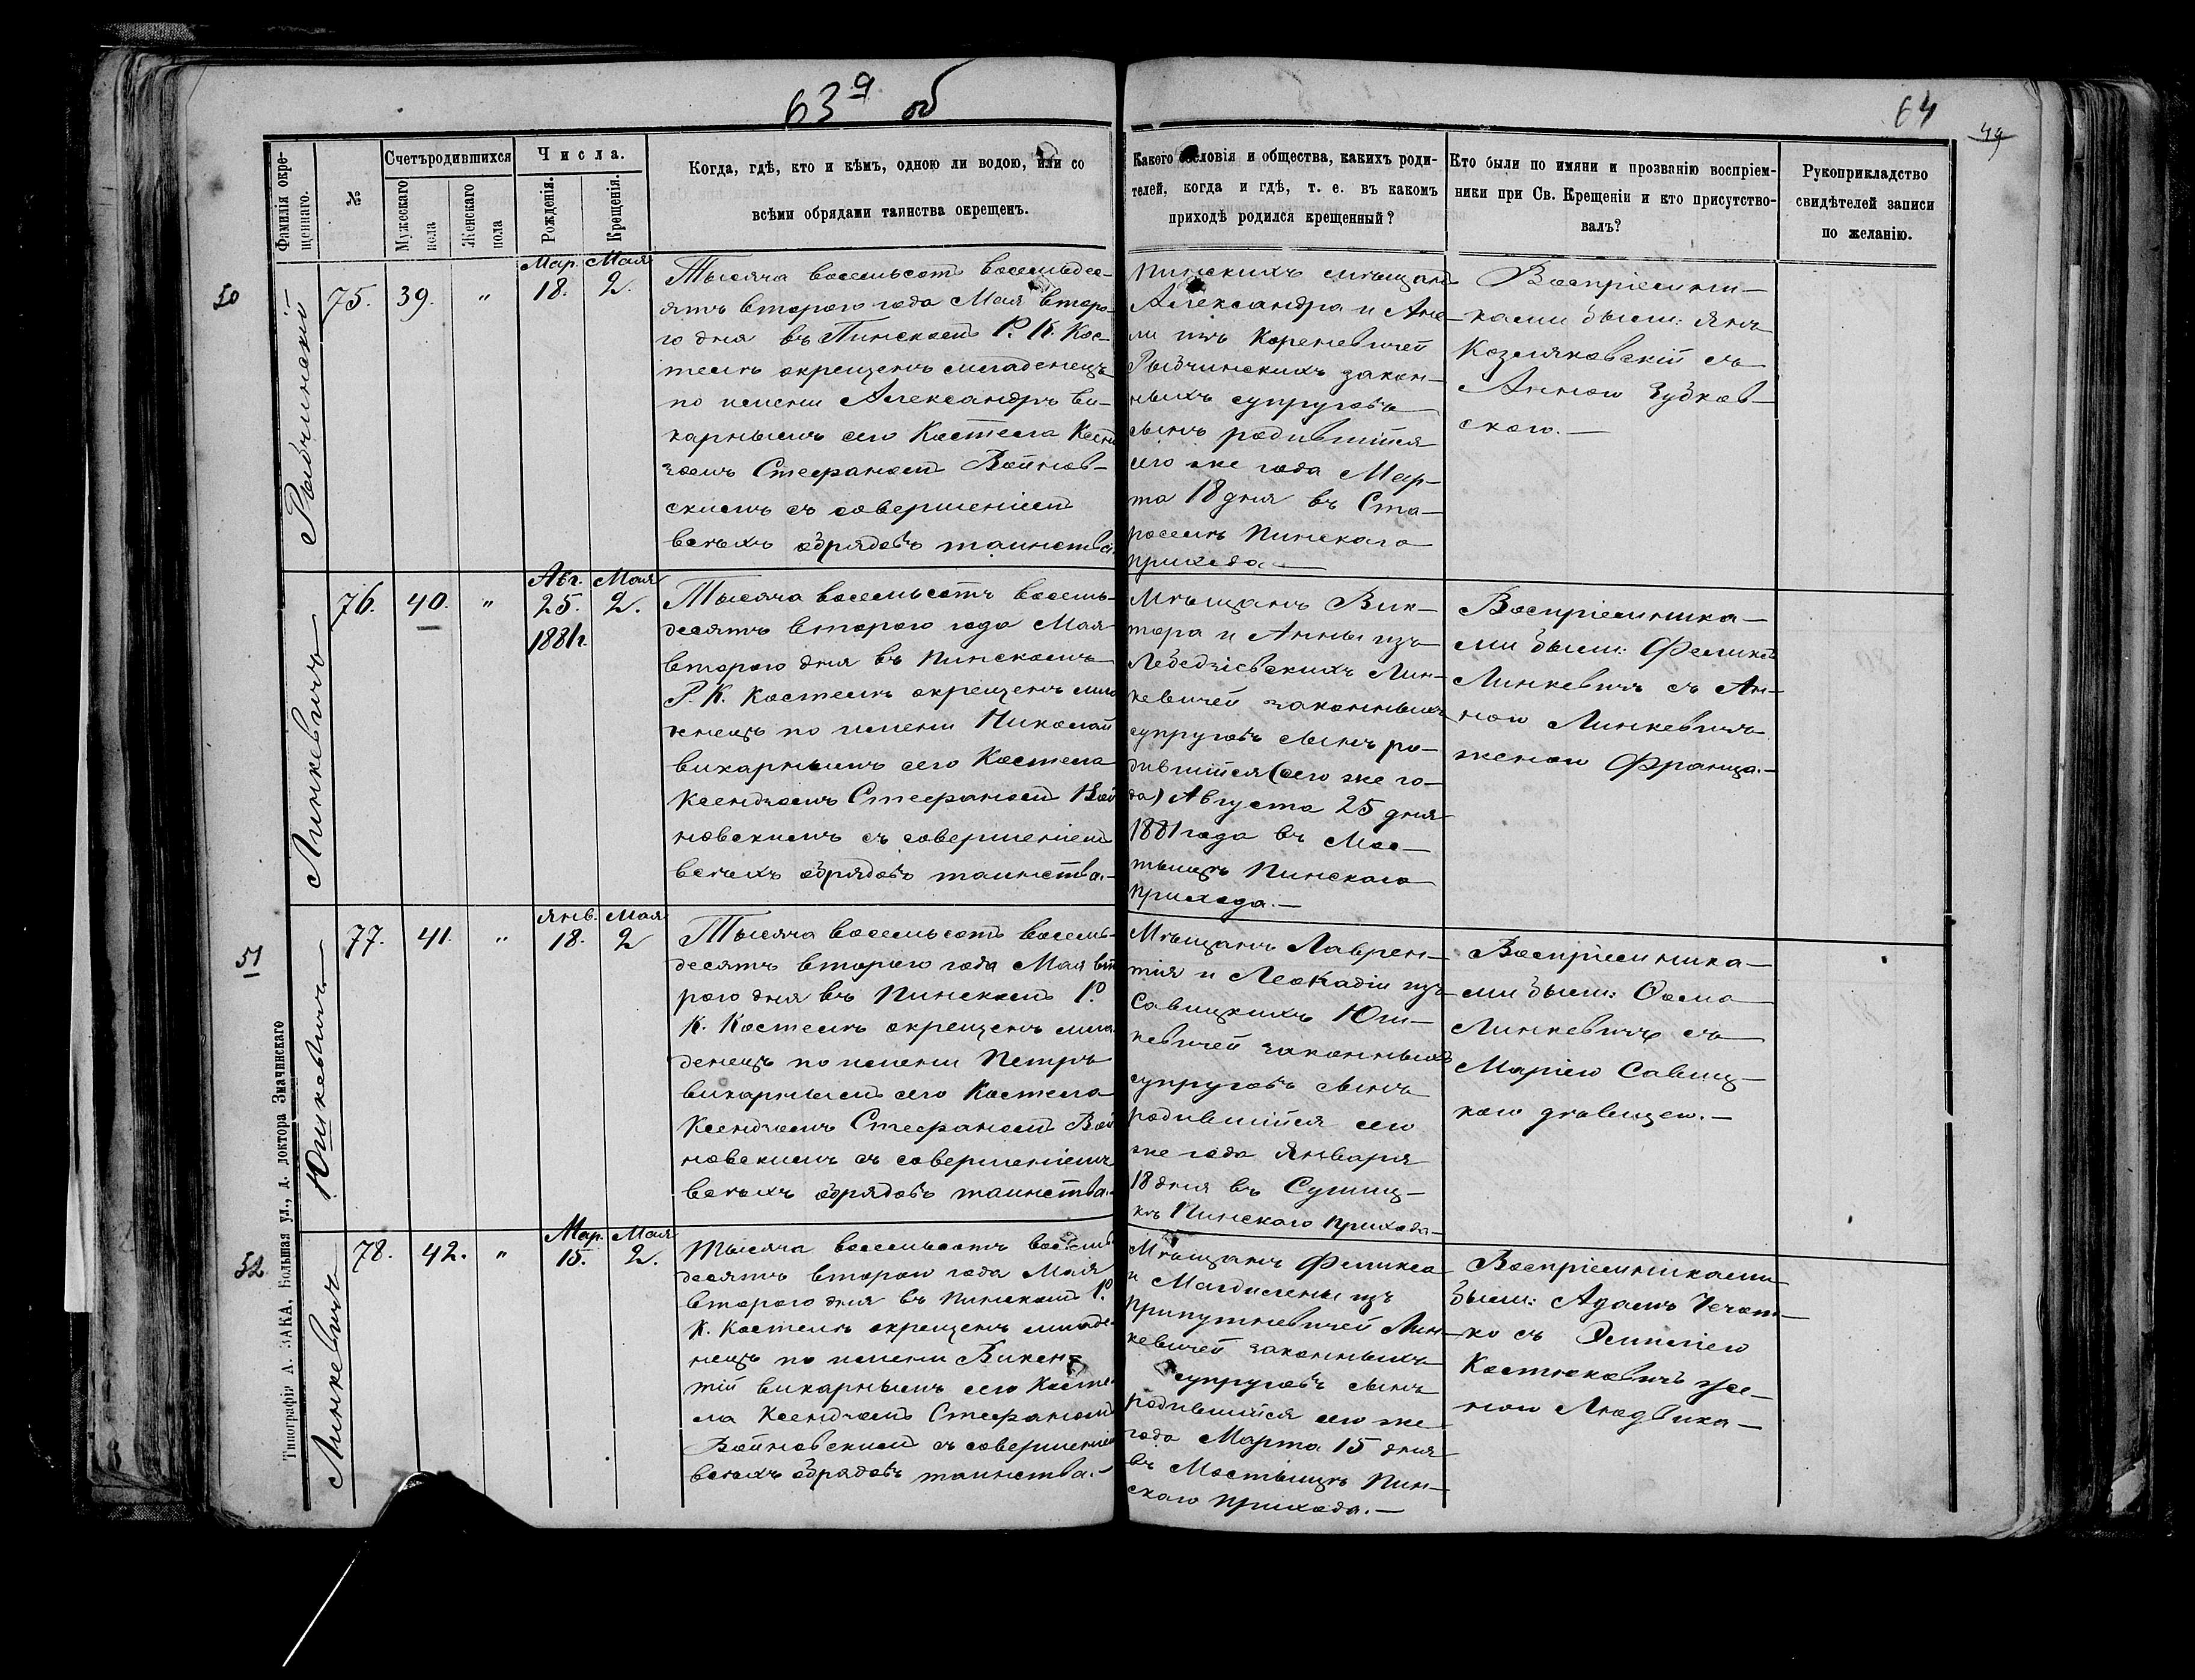 63а об
64
49
Фамилія окрещеннаго.
№
Счетъ родившихся
Мужескаго пола
Женскаго пола
Числа.
Рожденія.
Крещенія.
Когда, гдѣ, кто и кѣмъ, одною ли водою, или со
всѣми обрядами таинства окрещенъ.
Какого сословія и общества, какихъ роди-
телей, когда и гдѣ, т. е. въ какомъ
приходѣ родился крещенный?
Кто были по имяни и прозванію воспріем-
ники при Св. Крещеніи и кто присутство-
валъ?
Рукоприкладство
свидѣтелей записи
по желанію.
50
Рыбчинскій
75. 39. „
Мар. 18.
Мая 2.
Тысяча восемьсотъ восемьдес-
ятъ второго года Мая второ-
го дня въ Пинскомъ Р. К. Кос-
телѣ окрещенъ младенецъ
по имени Александръ ви-
карнымъ сего Костела Ксен-
дзомъ Стефаномъ Войнов-
скимъ съ совершеніемъ
всѣхъ обрядовъ таинства.
Пинскихъ мѣщанъ
Александра и Ане-
ли изъ Кореневичей
Рыбчинскихъ закон-
ныхъ супруговъ
сынъ родившійся
сего же года Мар-
та 18 дня въ Ста-
роселѣ Пинскаго
прихода
Воспріемни-
ками были: Янъ
Козляковскій съ
Анною Зубков-
скою.
Линкевичъ
76. 40. „
Авг. 25. 1881г.
Мая 2.
Тысяча восемьсотъ восемь-
десятъ второго года Мая
второго дня въ Пинскомъ
Р. К. Костелѣ окрещенъ мла-
денецъ по имени Николай
викарнымъ сего Костела
Ксендзомъ Стефаномъ Вой
новскимъ съ совершеніемъ
всѣхъ обрядовъ таинства.
Мѣщанъ Вик-
тора и Анны изъ
Лебедзіевскихъ Лин-
кевичей законныхъ
супруговъ сынъ ро-
дившійся (сего же го-
да) Августа 25 дня
1881 года въ Мос-
тыцѣ Пинскаго
прихода.
Воспріемника-
ми были: Феликсъ
Линкевичъ съ Ан-
ною Линкевичъ
женою Франца.
51
Юшкевичъ
77. 41. „
Янв. 18.
Мая 2
Тысяча восемьсотъ восемь-
десятъ второго года Мая вто
рого дня въ Пинскомъ Р.
К. Костелѣ окрещенъ мла
денецъ по имени Петръ
викарнымъ сего Костела
Ксендзомъ Стефаномъ Вой
новскимъ съ совершеніемъ
всѣхъ обрядовъ таинства.
Мѣщанъ Лаврен-
тія и Леокадіи изъ
Савицкихъ Юш-
кевичей законныхъ
супруговъ сынъ
родившійся сего
же года Января
18 дня въ Сушиц-
кѣ Пинскаго прихода
Воспріемника-
ми были: Ѳома
Линкевичъ съ
Маріею Савиц-
кою дѣвицею.
52
Линкевичъ
78. 42. „
Мар. 15.
Мая 2.
Тысяча восемьсотъ восемь
десятъ второго года Мая
второго дня въ Пинскомъ Р.
К. Костелѣ окрещенъ младе-
нецъ по имени Викен-
тій викарнымъ сего Косте-
ла Ксендзомъ Стефаномъ
Войновскимъ съ совершеніемъ
всѣхъ обрядовъ таинства.
Мѣщанъ Феликса
и Магдалены изъ
Припутневичей Лин-
кевичей законныхъ
супруговъ сынъ
родившійся сего же
года Марта 15 дня
въ Мостыцѣ Пин-
скаго прихода.
Воспріемниками
были: Адамъ
съ
женою Людвика
Типографія А. ЗАКА, Большая ул., д. доктора Змачинскаго